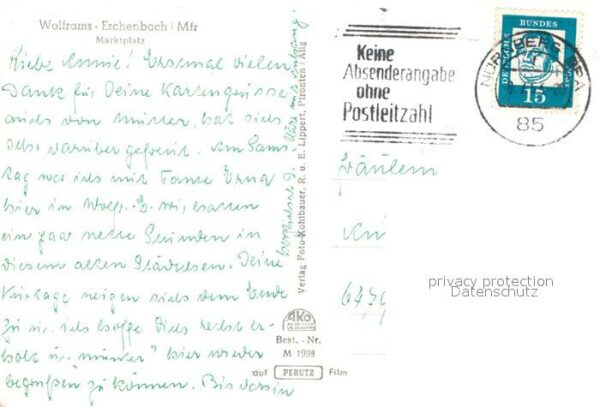 Wolframs - Eschenbach / Mfr
Marktplatz
Liebe Annie! Erstmal vielen
Dank für Deine Kartengrüsse
auch von Mutter, hat sich
sehr darüber gefreut. Am Sams-
tag war ich mit Tante Erna
hier in Wolfr.-E. wir hatten
ein paar nette Stunden in
diesem alten Städtchen. Deine
Kurtage neigen sich dem Ende
zu u. ich hoffe Dich recht er-
holt u. "munter" hier wieder
begrüßen zu können. Bis dahin
herzlichst D.
Verlag Foto-Kohlbauer, R. u. E. Lippert, Pfronten / Allg
AKO
Best. - Nr.
M 1998
auf PERUTZ Film
Keine
Absenderangabe
ohne
Postleitzahl
NÜRNBERG
85
DEUTSCHE BUNDESPOST
15
Fräulein
privacy protection
Datenschutz